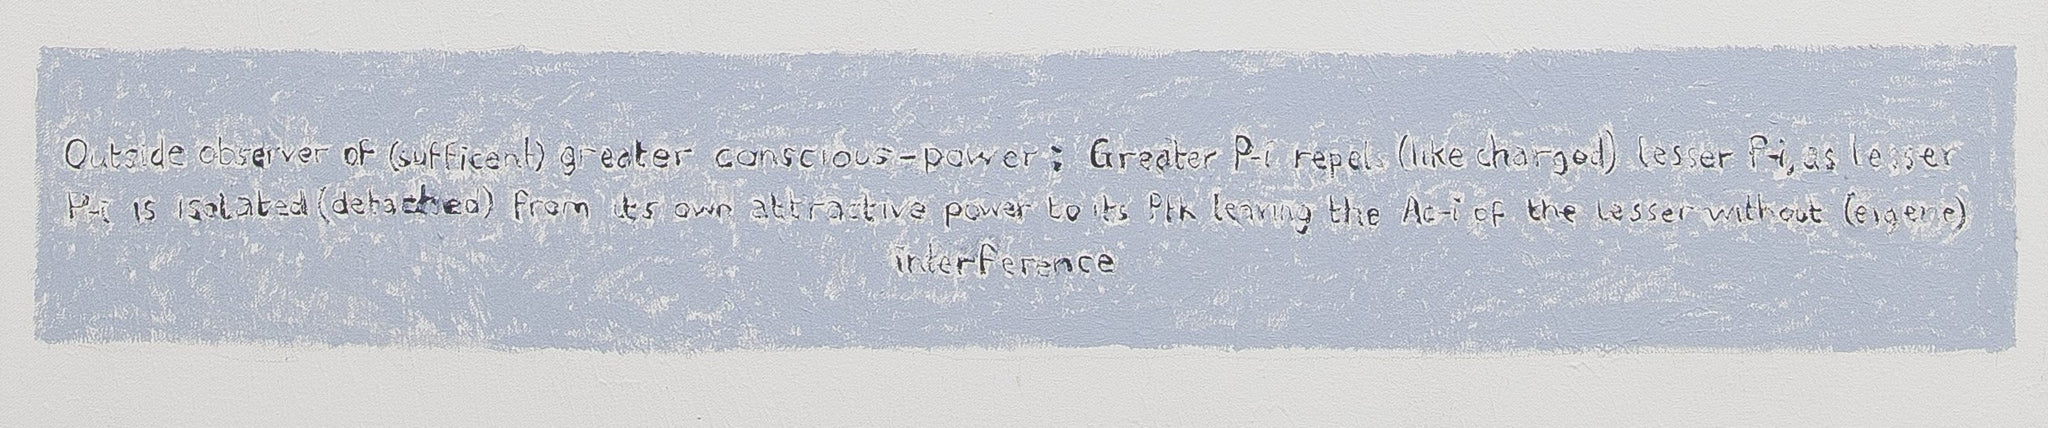 Outside observer of (sufficent) greater conscious-power; Greater P-i repels (like charged) lesser P-i, as lesser
P-i is isolated (detached) from its own attractive power to its Ptk leaving the Ac-i of the lesser without (eigene)
interference